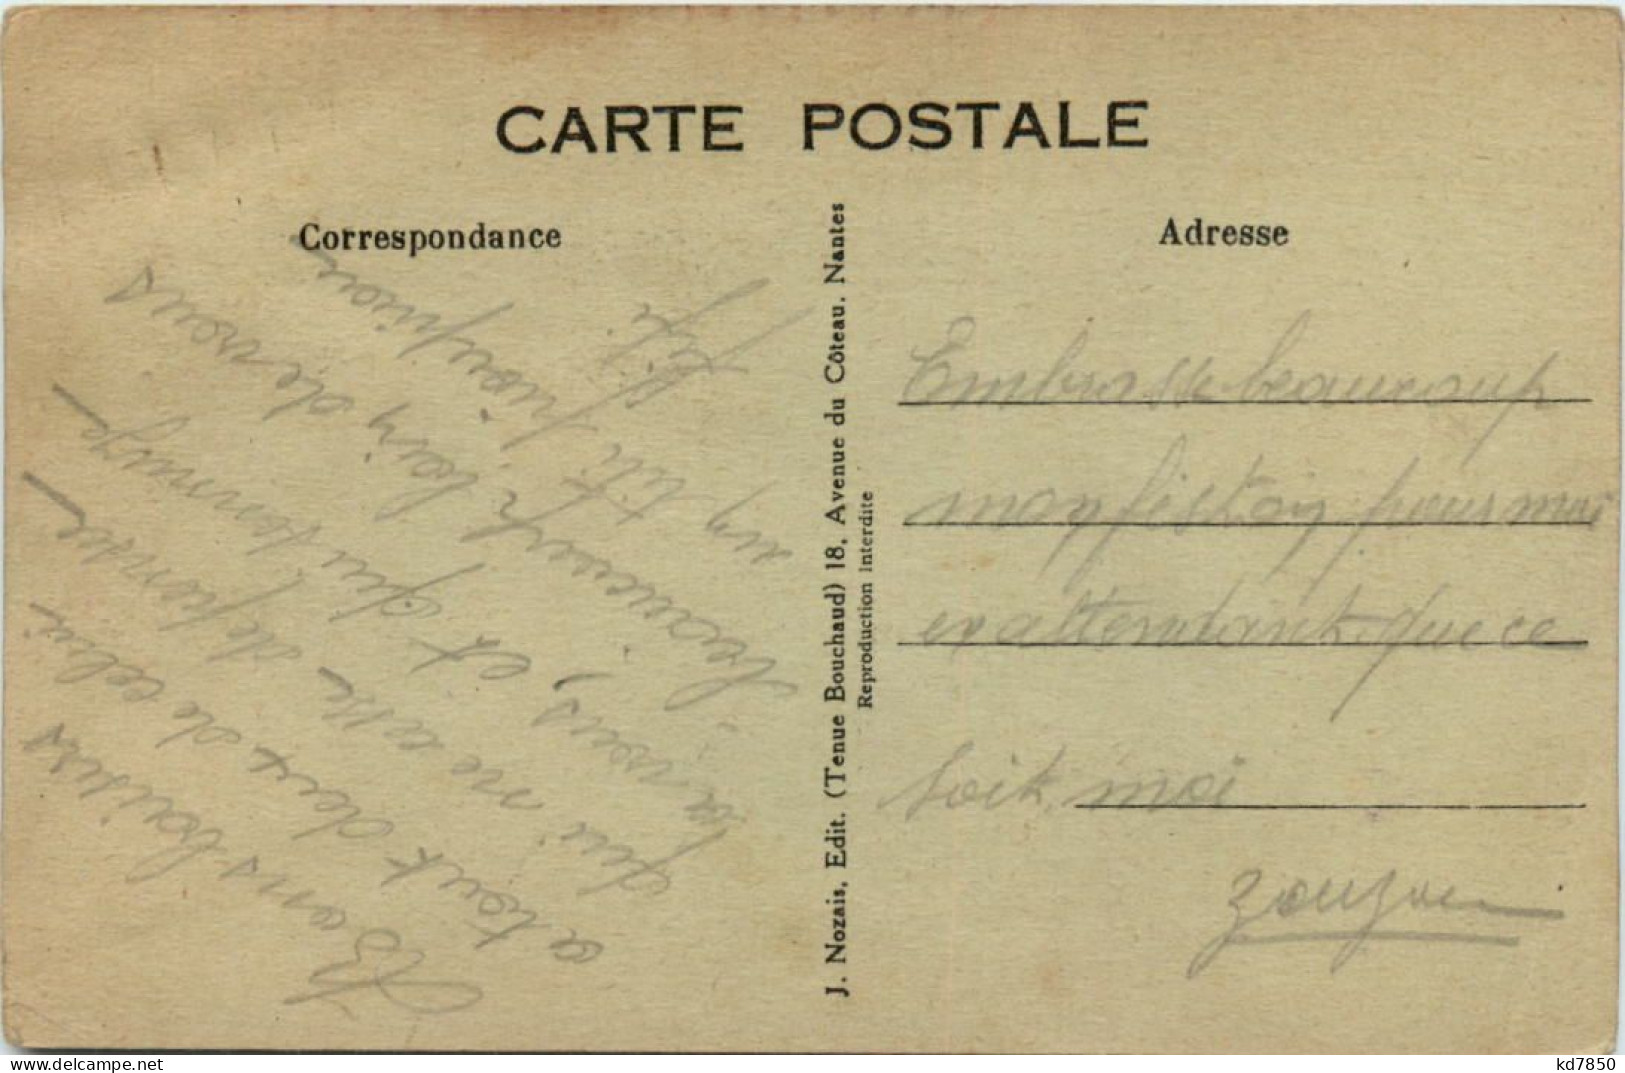 CARTE POSTALE
Correspondance
Bons baisers
a tout deux de celui
qui ne cesse de penser
a vous, et qui songe
beaucoup loin de vous
un p'tit pioupiou
fifi
J. Nozais, Edit. (Tenue Bouchaud) 18, Avenue du Côteau, Nantes
Reproduction Interdite
Adresse
Embrasse beaucoup
mon fiston pour moi
en attendant que ce
soit moi
Zouzou
delcampe.net
kd7850